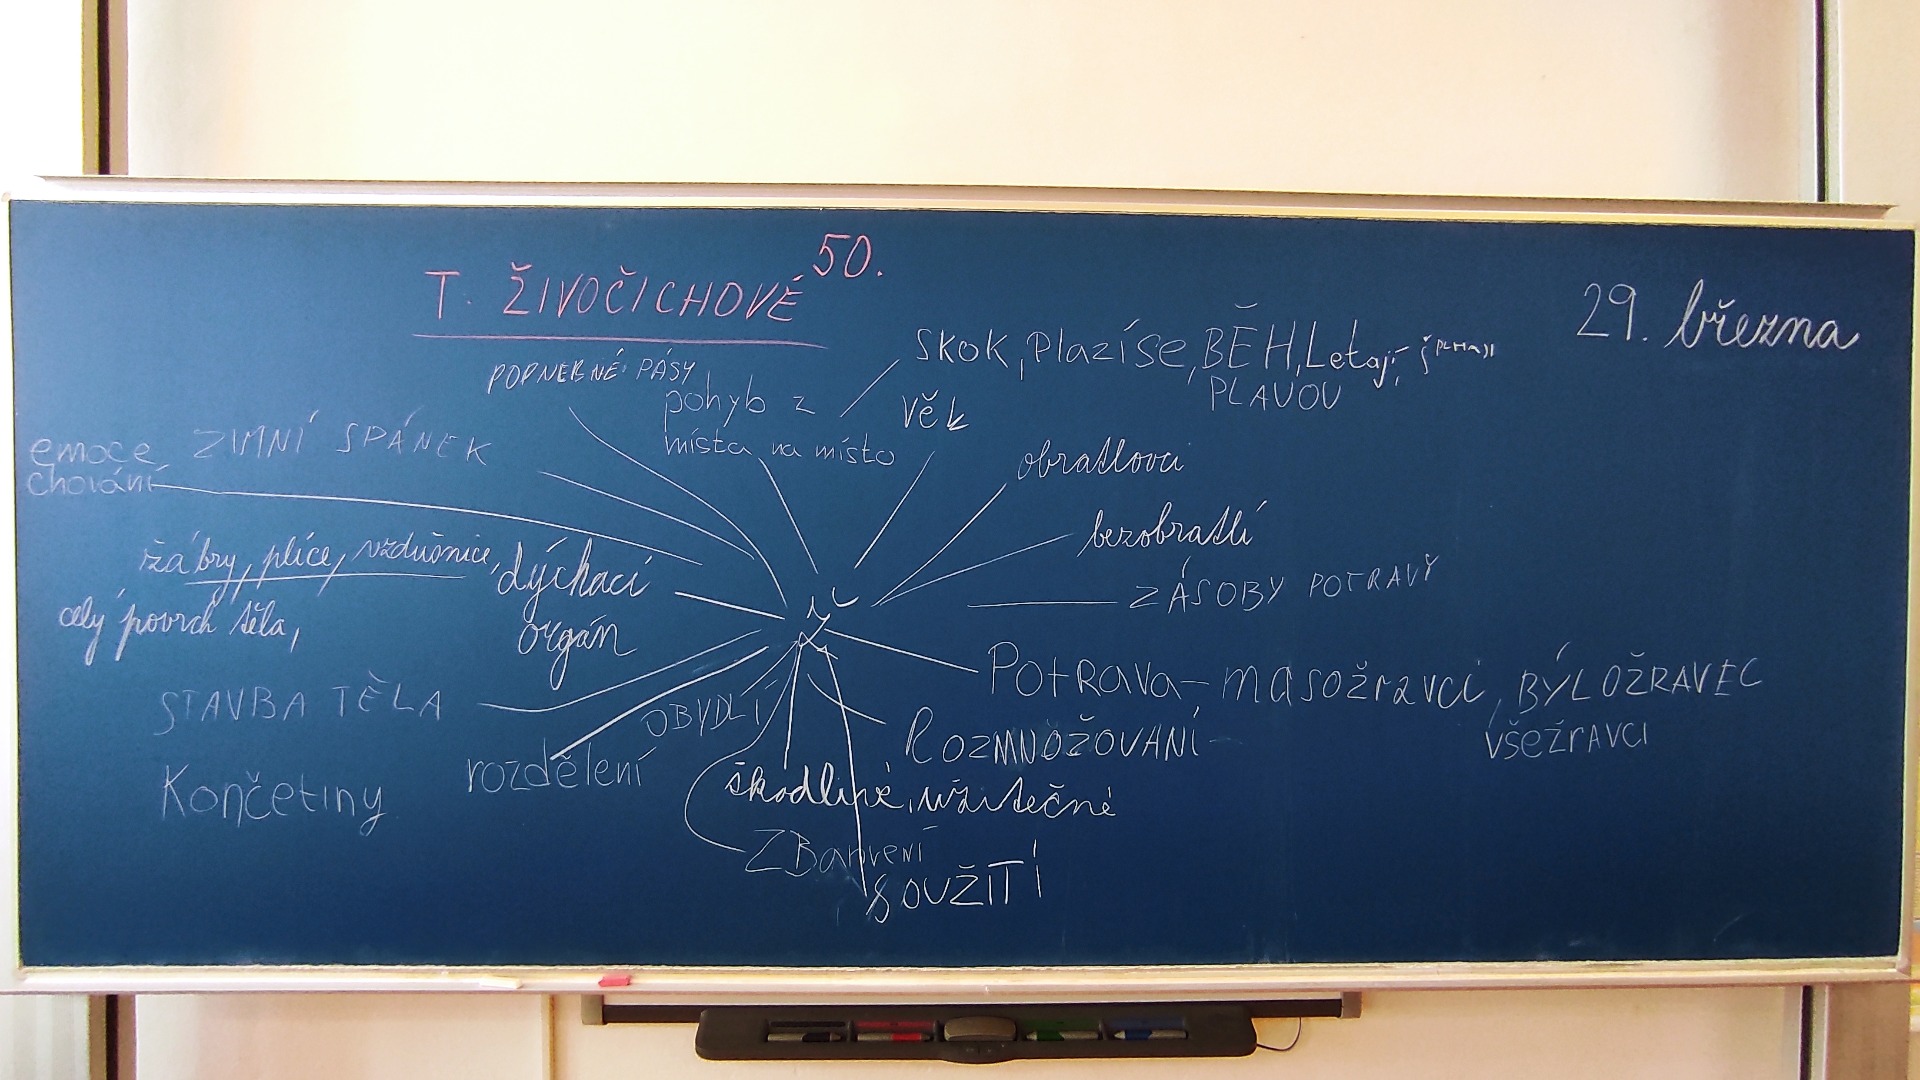 T. ŽIVOČICHOVÉ 50.
29. března
POPNEBNÉ PÁSY
pohyb z
místa na místo
SKOK, Plazíse, BĚH, Letají,
PLAVOU
Věk
obratlovci
bezobratlí
ZÁSOBY POTRAVY
Potrava - masožravci, BÝLOŽRAVEC
všežravci
ROZMNOŽOVANÍ -
škodlivé, užitečné
ZBarvení
SOUŽITÍ
OBYDLÍ
rozdělení
Končetiny
STAVBA TĚLA
dýchací
orgán
žábry, plíce, vzdušnice,
celý povrch těla,
emoce
chování
ZIMNÍ SPÁNEK